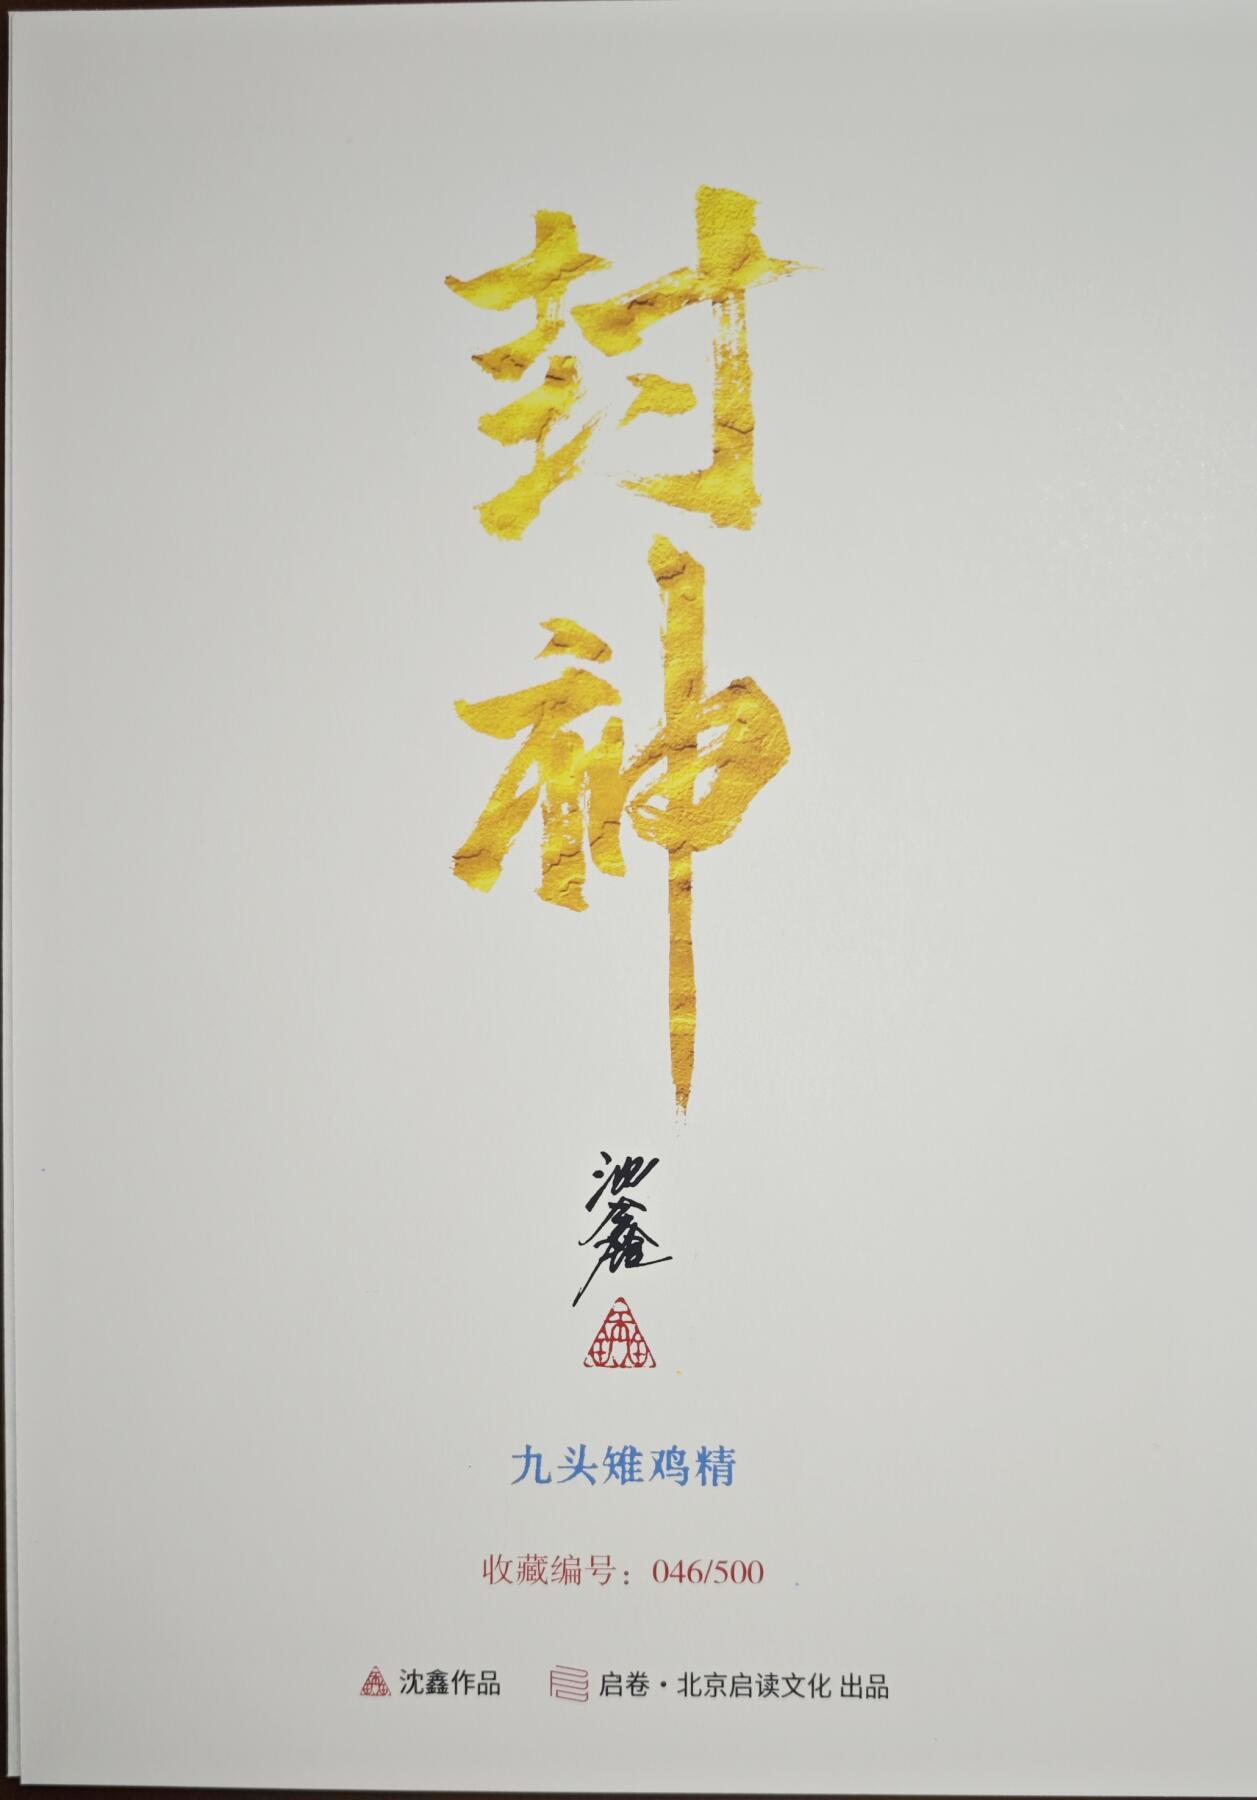 封神
沈鑫
鑫
九头雉鸡精
收藏编号：046/500
沈鑫作品 启卷·北京启读文化 出品